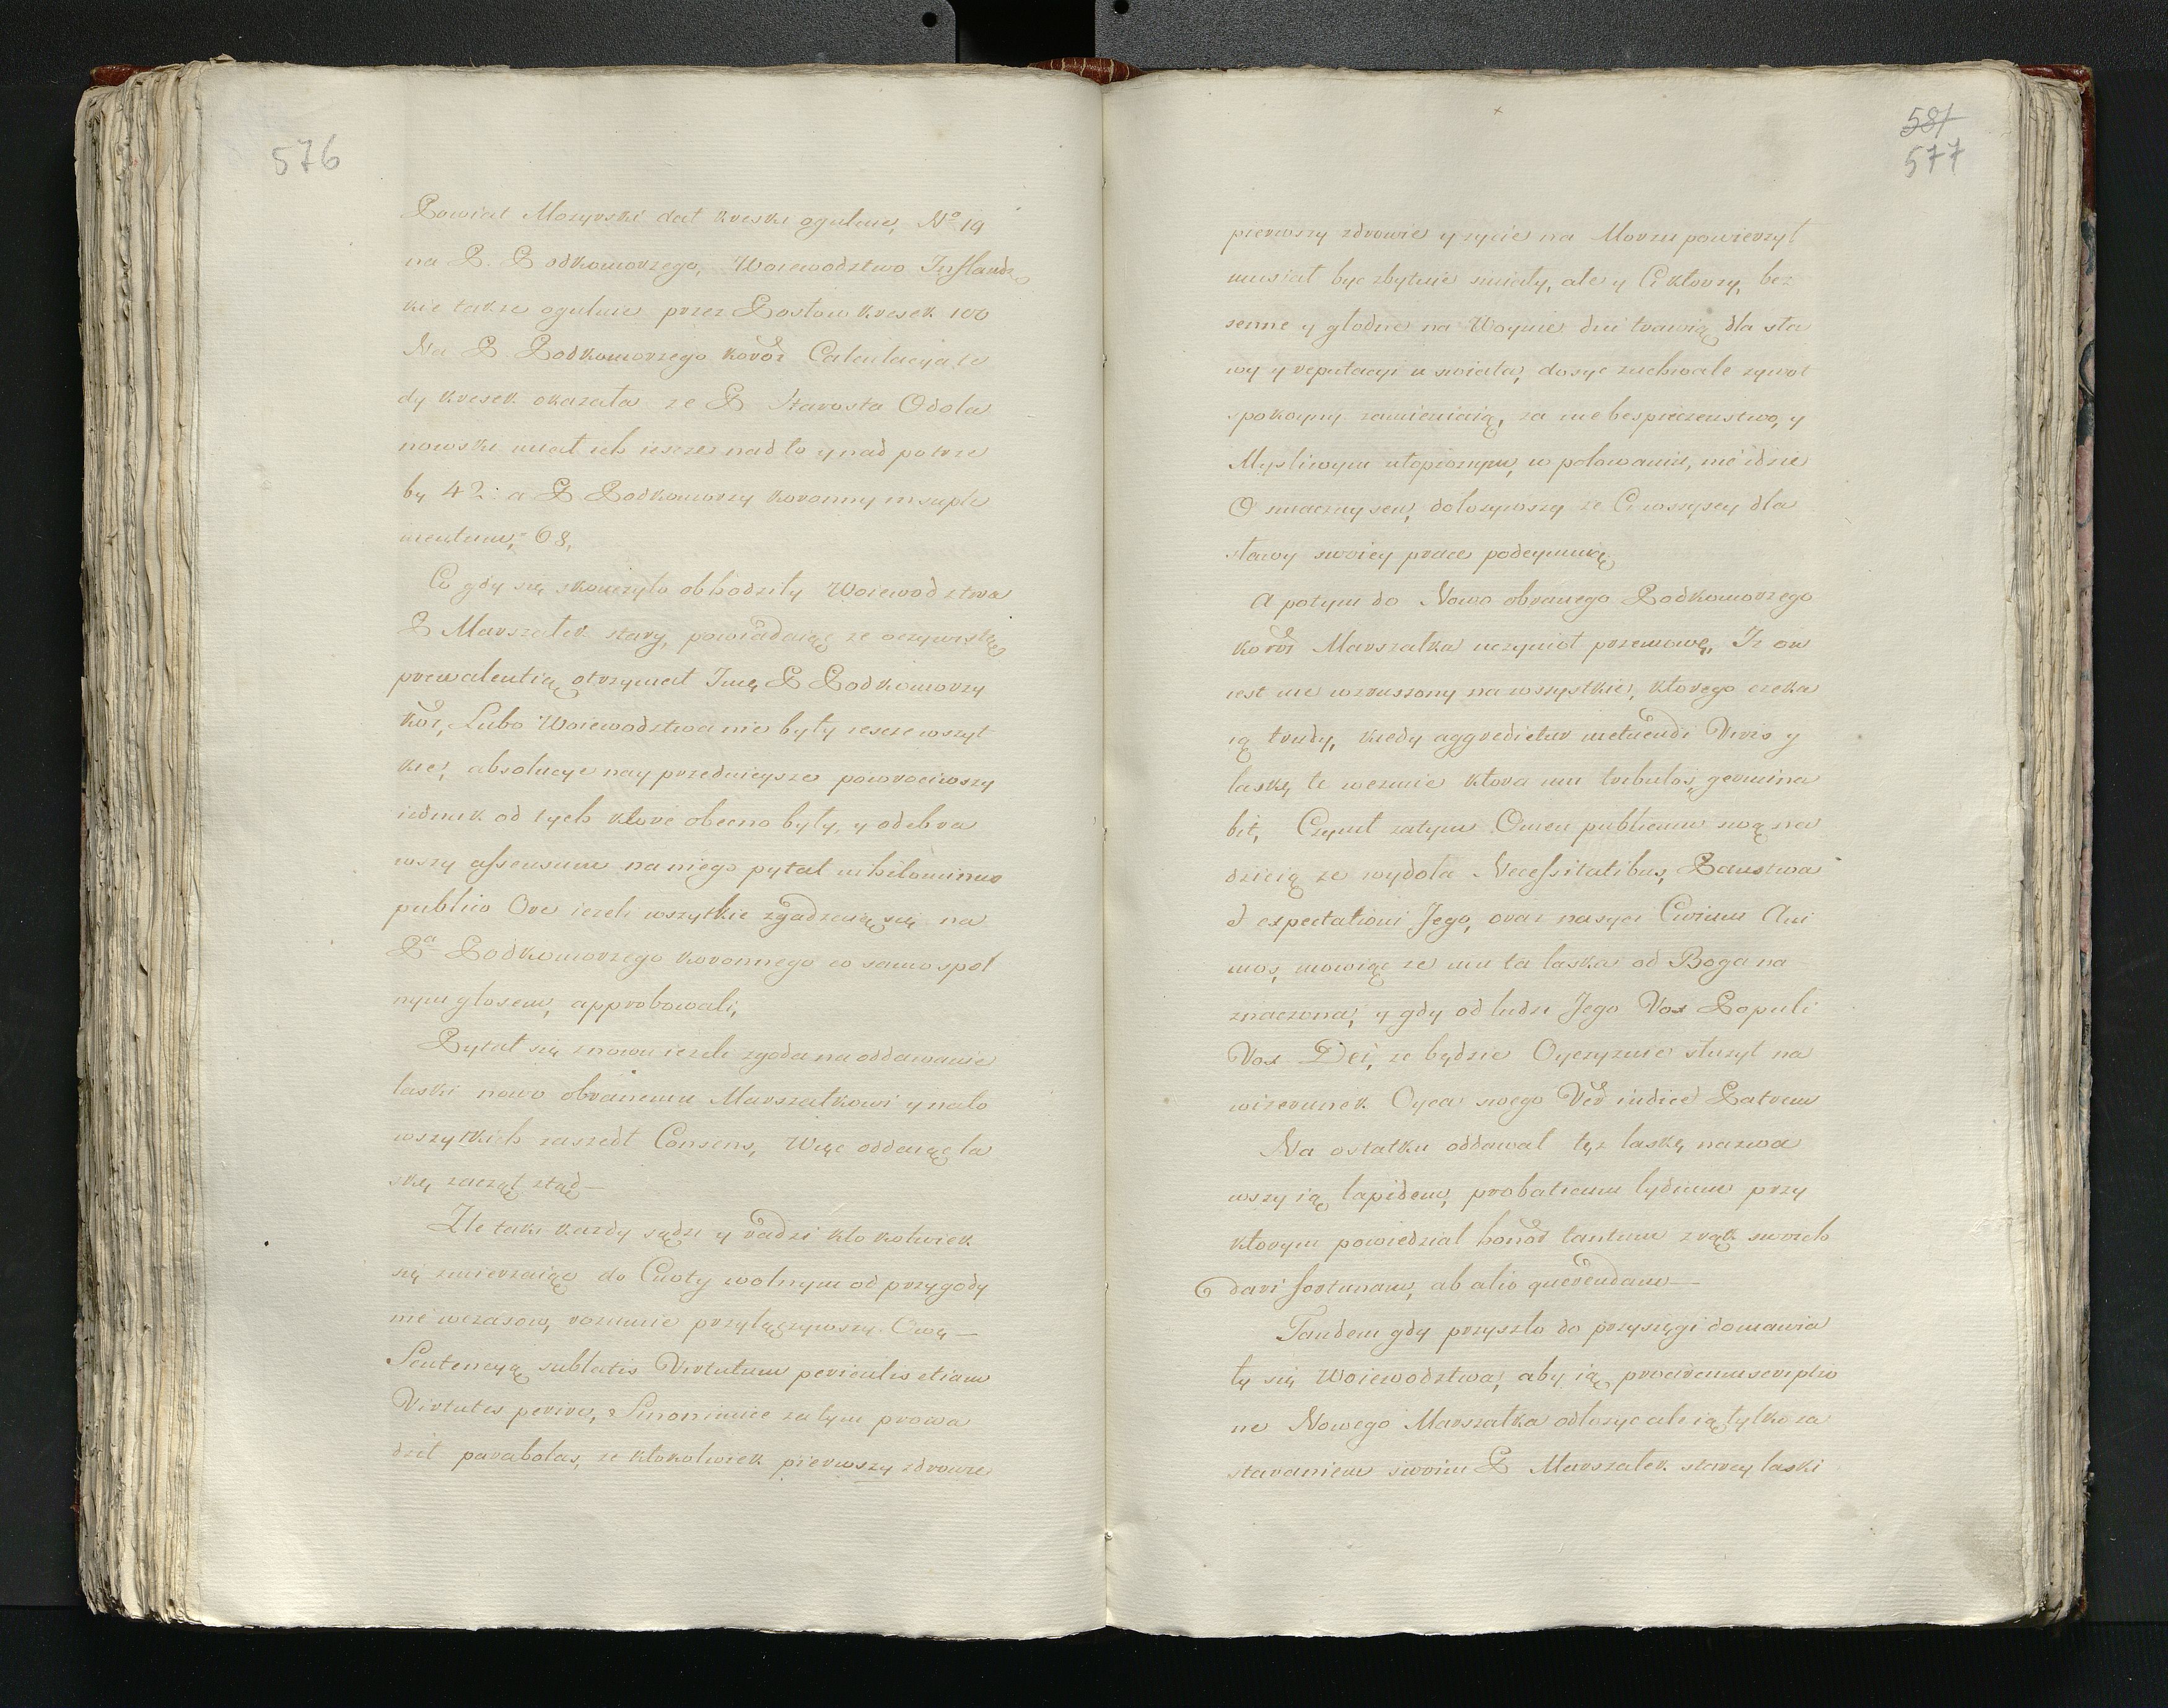 576
Powiat Mozyrski dał kreski ogulnie, No 19
na P. Podkomorzego, Woiewodztwo Inflandz
kie takze ogulnie przez Posłow kresek 100
Na P. Podkomorzego koror Calculacya te
dy kresek okazała ze P Starosta Odola
nowski miał ich iescze nad to y nad potrze
bę 42: a P. Podkomorzy koronny in suple
mentum, 68,
Co gdy się skonczyło obhodziły Woiewodztwa
P Marszałek stary, powiadaiąc ze oczywistą
prewalentią otrzymał Imę P Podkomorzy
kor, Lubo Woiewodztwa nie były iescze wszyt
kie, absolucye nay przednieysze powrociwszy
iednak od tych ktore obecno były, y odebra
wszy assensum na niego pytał nihilominus
publico Ore iezeli wszytkie zgadzaią się na
Pa Podkomorzego koronnego co samo spol
nym głosem, approbowali,
Pytał się znowu iezeli zgoda na oddawanie
laski nowo obranemu Marszałkowi y na to
wszytkich zaszedł Consens, Więc oddaiąc la
skę zaczął ztąd —
Zle taki kazdy sądzi y radzi kto kolwiek
się zmierzaiąc do Cnoty wolnym od przygody
nie wczasow, rozumie przyłączywszy Ową —
Sentencyą sublatis Virtutum periculis etiam
Virtutes perire, Sinonimice zatym prowa
dził parabolas, ze ktokolwiek pierwszy zdrowie
581
577
pierwszy zdrowie y zycie na Morzu powierzył
musiał byc zbytnie smiały, ale y Ci ktorzy, bez
senne y głodne na Woynie dni trawią dla sła
wy y reputacyi u swiata, dosyc zuchwale zywot
spokoyny zamieniaią, za nie bespieczenstwo, y
Mysliwym utopionym, w polowaniu, nie idzie
O smaczny sen, dołozywszy ze Ci wszyscy dla
sławy swoiey prace podeymuią
A potym do Nowo obranego Podkomorzego
koror Marszałka uczynioł przemowę, Iz on
iest nie wzruszony na wszystkie, ktorego czeka
ią trudy, kiedy aggredietur metuendi Viris y
laskę te wezmie ktora mu tribulos, germina
bit, Czynił zatym Omen publicum swą na
dzieią ze wydoła Necessitatibus, Panstwa
d expectationi Jego, oraz naszych Civium Ani
mos, mowiąc ze mu ta laska od Boga na
znaczona, y gdy od ludzi Jego Vox Populi
Vox Dei, ze będzie Oyczyznie słuzył na
wizerunek Oyca swego Ver iudice Patrem
Na ostatku oddawał tęz laskę nazwa
wszy ią lapidem, probaticum lydium przy
ktorym powiedział honor tantum z rąk swoich
dari fortunam, ab alio querendam —
Tandem gdy przyszło do przysięgi domawia
ły się Woiewodztwa, aby ią
ne Nowego Marszałka odłozyc ale ią tylko za
staraniem swoim P Marszałek starey laski